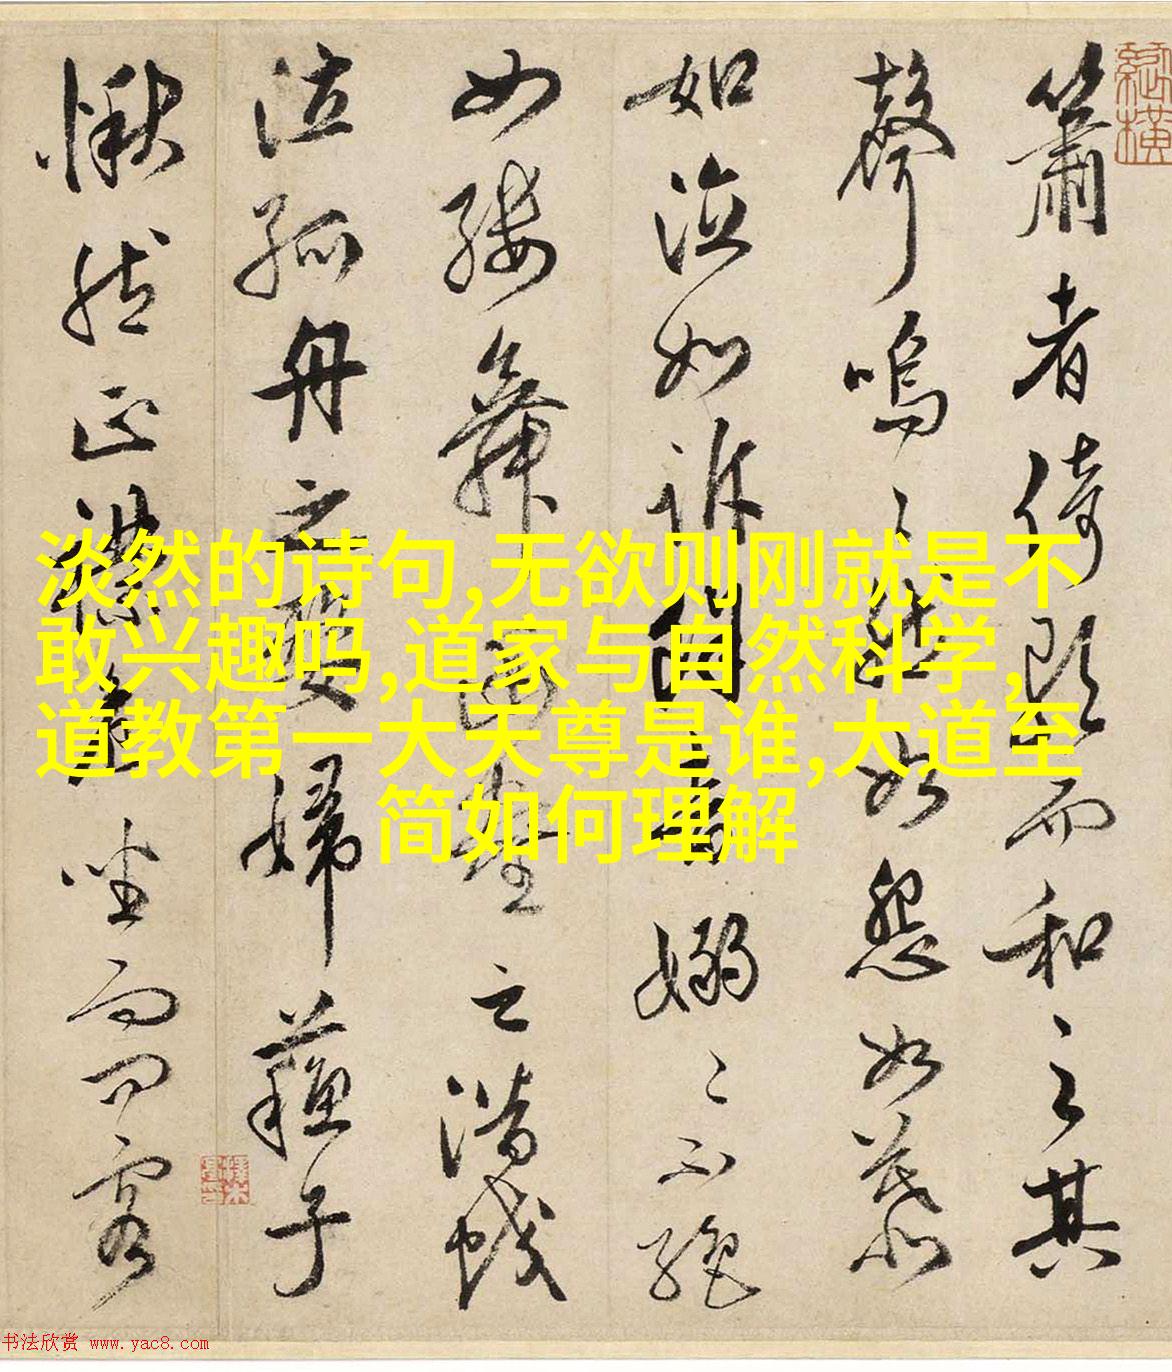 簫者倚歌而和之其
聲嗚〻然如怨如慕
如泣如訴餘音嫋〻不絕
如縷舞幽壑之潛蛟
泣孤舟之嫠婦蘇子
愀然正襟危坐而問客
淡然的诗句,无欲则刚就是不
敢兴趣吗,道家与自然科学,
道教第一大天尊是谁,大道至
简如何理解
书法欣赏 www.yac8.com